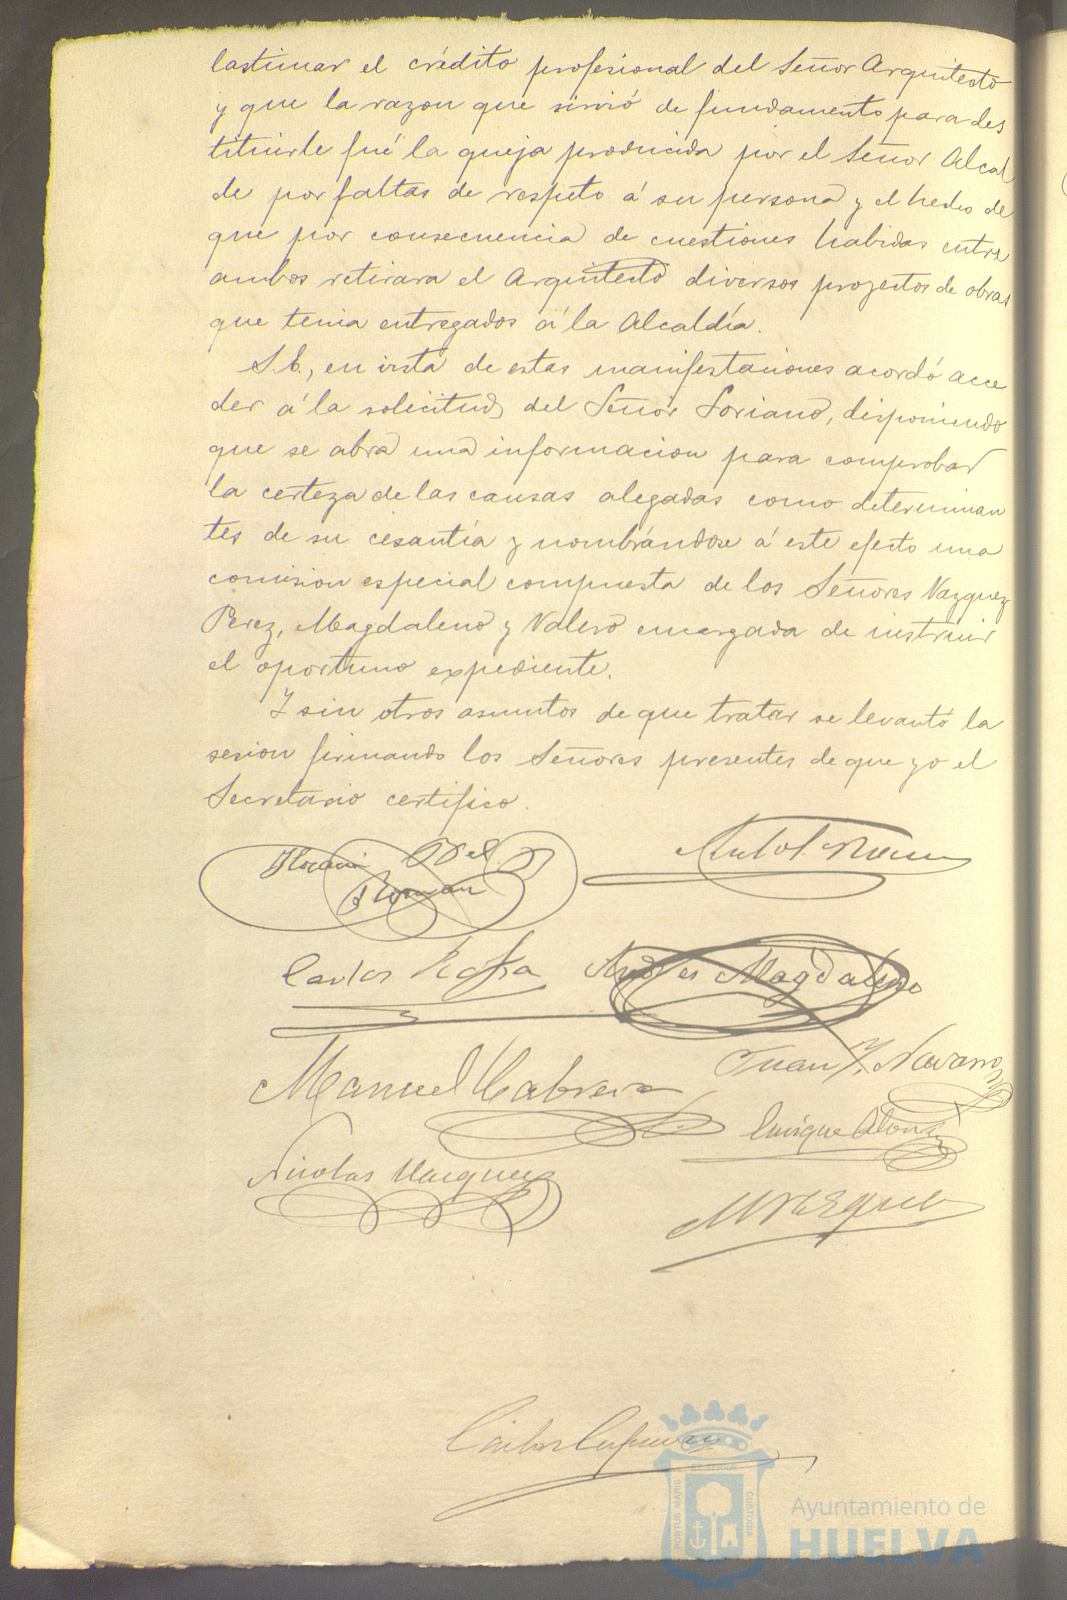 lastimar el crédito profesional del Señor Arquitecto
y que la razon que sirvió de fundamento para des
tituirle fué la queja producida por el Señor Alcal
de por faltas de respeto á su persona y el hecho de
que por consecuencia de cuestiones habidas entre
ambos retirara el Arquitecto diversos proyectos de obras
que tenia entregados á la Alcaldía.
S.E., en vista de estas manifestaciones acordó acce
der á la solicitud del Señor Soriano, disponiendo
que se abra una informacion para comprobar
la certeza de las causas alegadas como determinan
tes de su cesantía y nombrándose á este efecto una
comision especial compuesta de los Señores Vazquez
Perez, Magdaleno y Valero encargada de instruir
el oportuno expediente.
Y sin otros asuntos de que tratar se levantó la
sesion firmando los Señores presentes de que yo el
Secretario certifico.
Carlos
Andres Magdaleno
Manuel Cabrera
Juan Navarro
Enrique Alonso
Nicolas Vazquez
M Vazquez
Carlos
PORTUS MARIS
ET TERRÆ
CUSTODIA
Ayuntamiento de
HUELVA